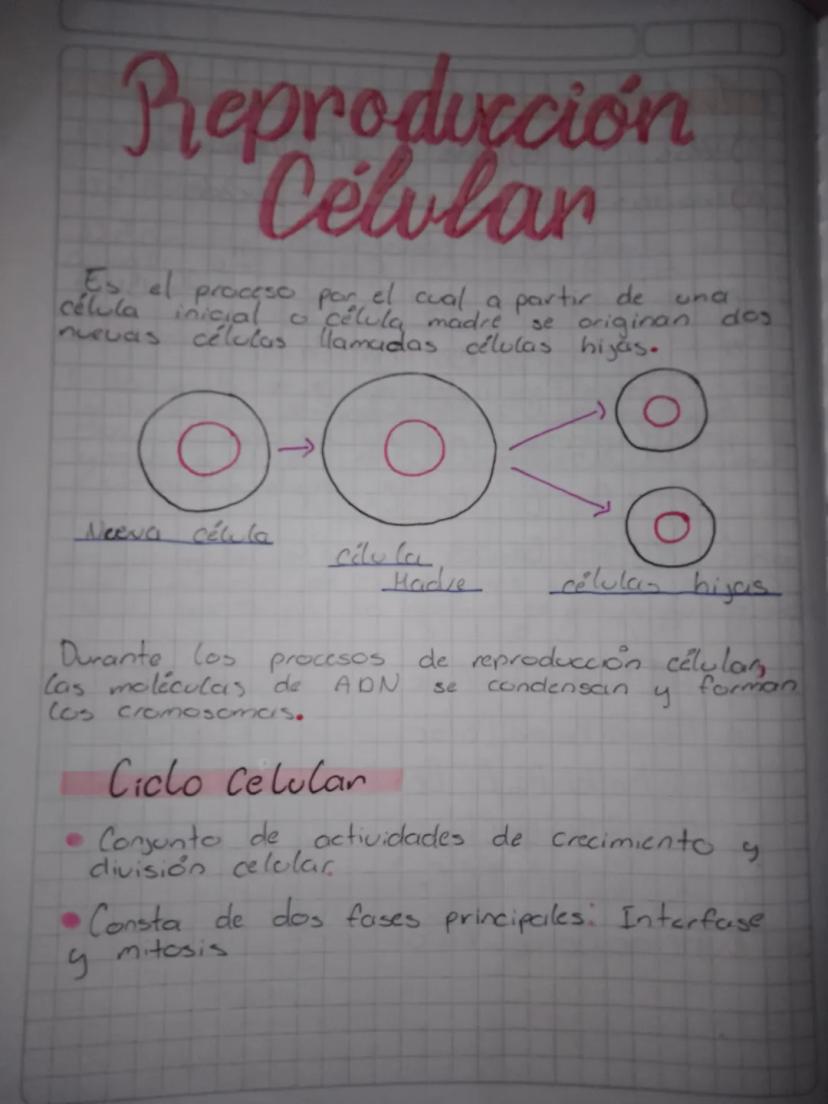 Reproducción
Célular
Es el proceso por el cual a partir de una
célula inicial o célula madre se originan dos
nuevas células llamadas células hijas.
Nueva célula
célula
Madre
células hijas
Durante los procesos de reproducción célular,
las moléculas de ADN se condensan y forman
los cromosomas.
Ciclo Celular
• Conjunto de actividades de crecimiento y
división celular.
• Consta de dos fases principales: Interfase
y mitosis